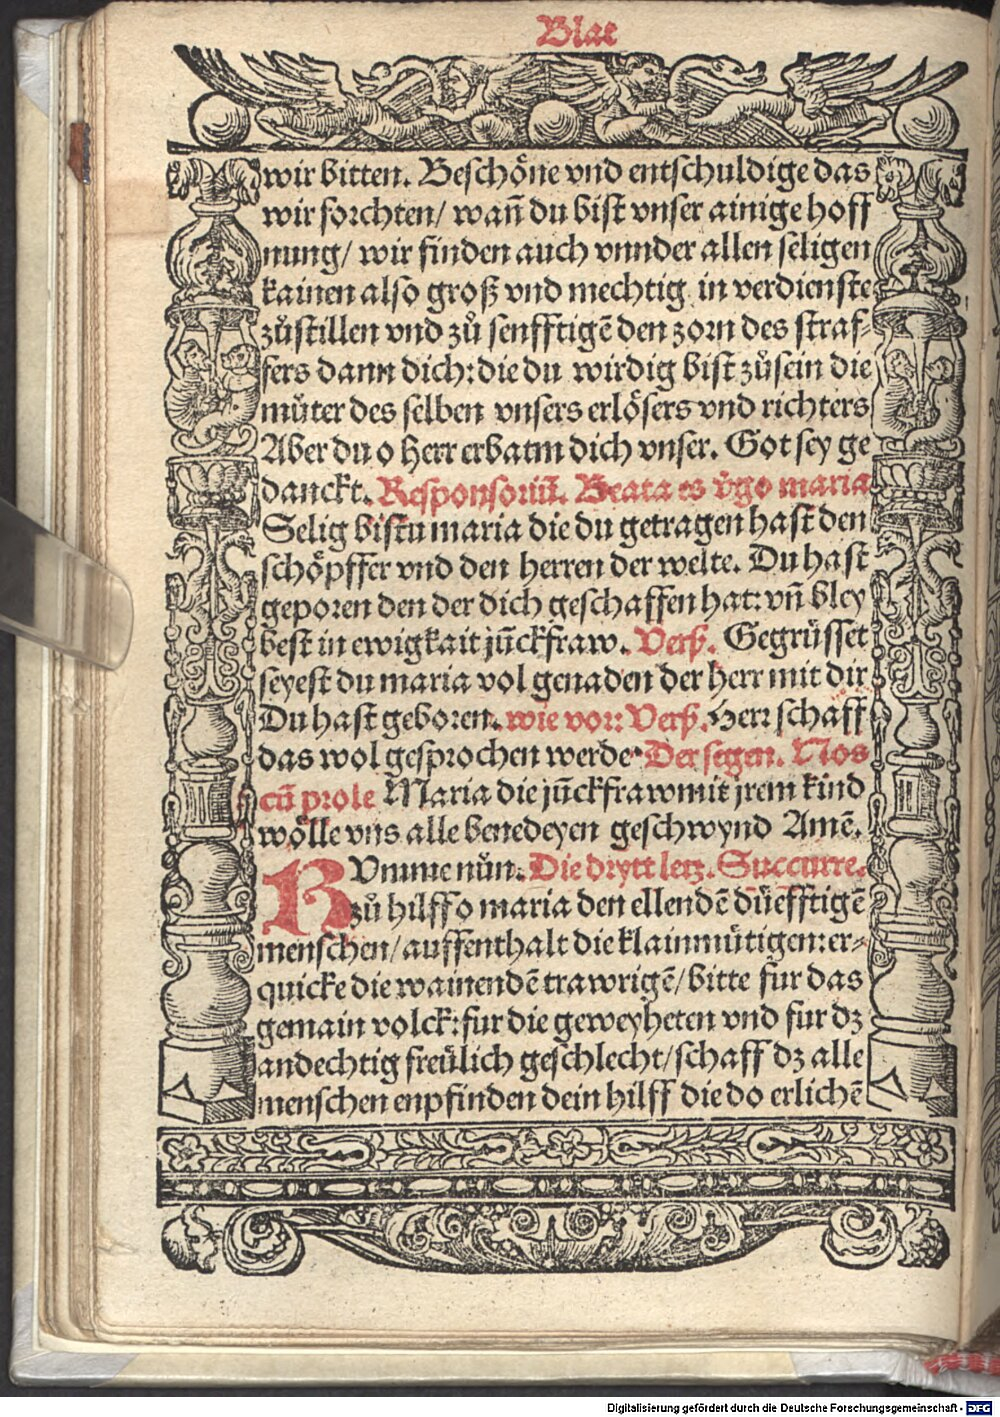 Blat
wir bitten. Beschöne vnd entschuldige das
wir forchten/ wañ du bist vnser ainige hoff
nung/ wir finden auch vnnder allen seligen
kainen also groß vnd mechtig in verdienste
zůstillen vnd zů senfftigē den zorn des straf-
fers dann dich: die du wirdig bist zůsein die
můter des selben vnsers erlösers vnd richters
Aber du o herr erbarm dich vnser. Got sey ge
danckt. Responsoriū. Beata es v̄go maria
Selig bistu maria die du getragen hast den
schöpffer vnd den herren der welte. Du hast
geporen den der dich geschaffen hat: vñ bley
best in ewigkait jūckfraw. Verß. Gegrüsset
seyest du maria vol genaden der herr mit dir
Du hast geboren. wie vor: Verß. Herr schaff
das wol gesprochen werde. Der segen. Nos
cū prole Maria die jūckfraw mit jrem kind
wölle vns alle benedeyen geschwynd Amē.
KVmme nůn. Die drytt letz. Succurre.
zů hilff o maria den ellendē dürfftigē
menschen/ auffenthalt die klainmütigen: er-
quicke die wainendē trawrigē/ bitte fur das
gemain volck: fur die geweyheten vnd fur dz
andechtig freülich geschlecht/ schaff dz alle
menschen enpfinden dein hilff die do erlichē
Digitalisierung gefördert durch die Deutsche Forschungsgemeinschaft - DFG